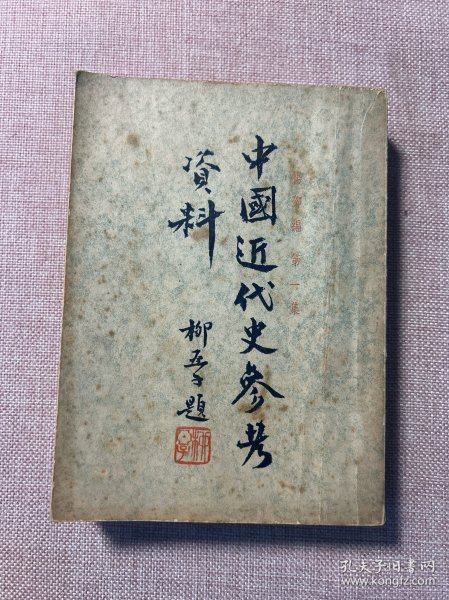 第一集
中國近代史參考
資料
柳亞子題
孔夫子旧书网
www.kongfz.com